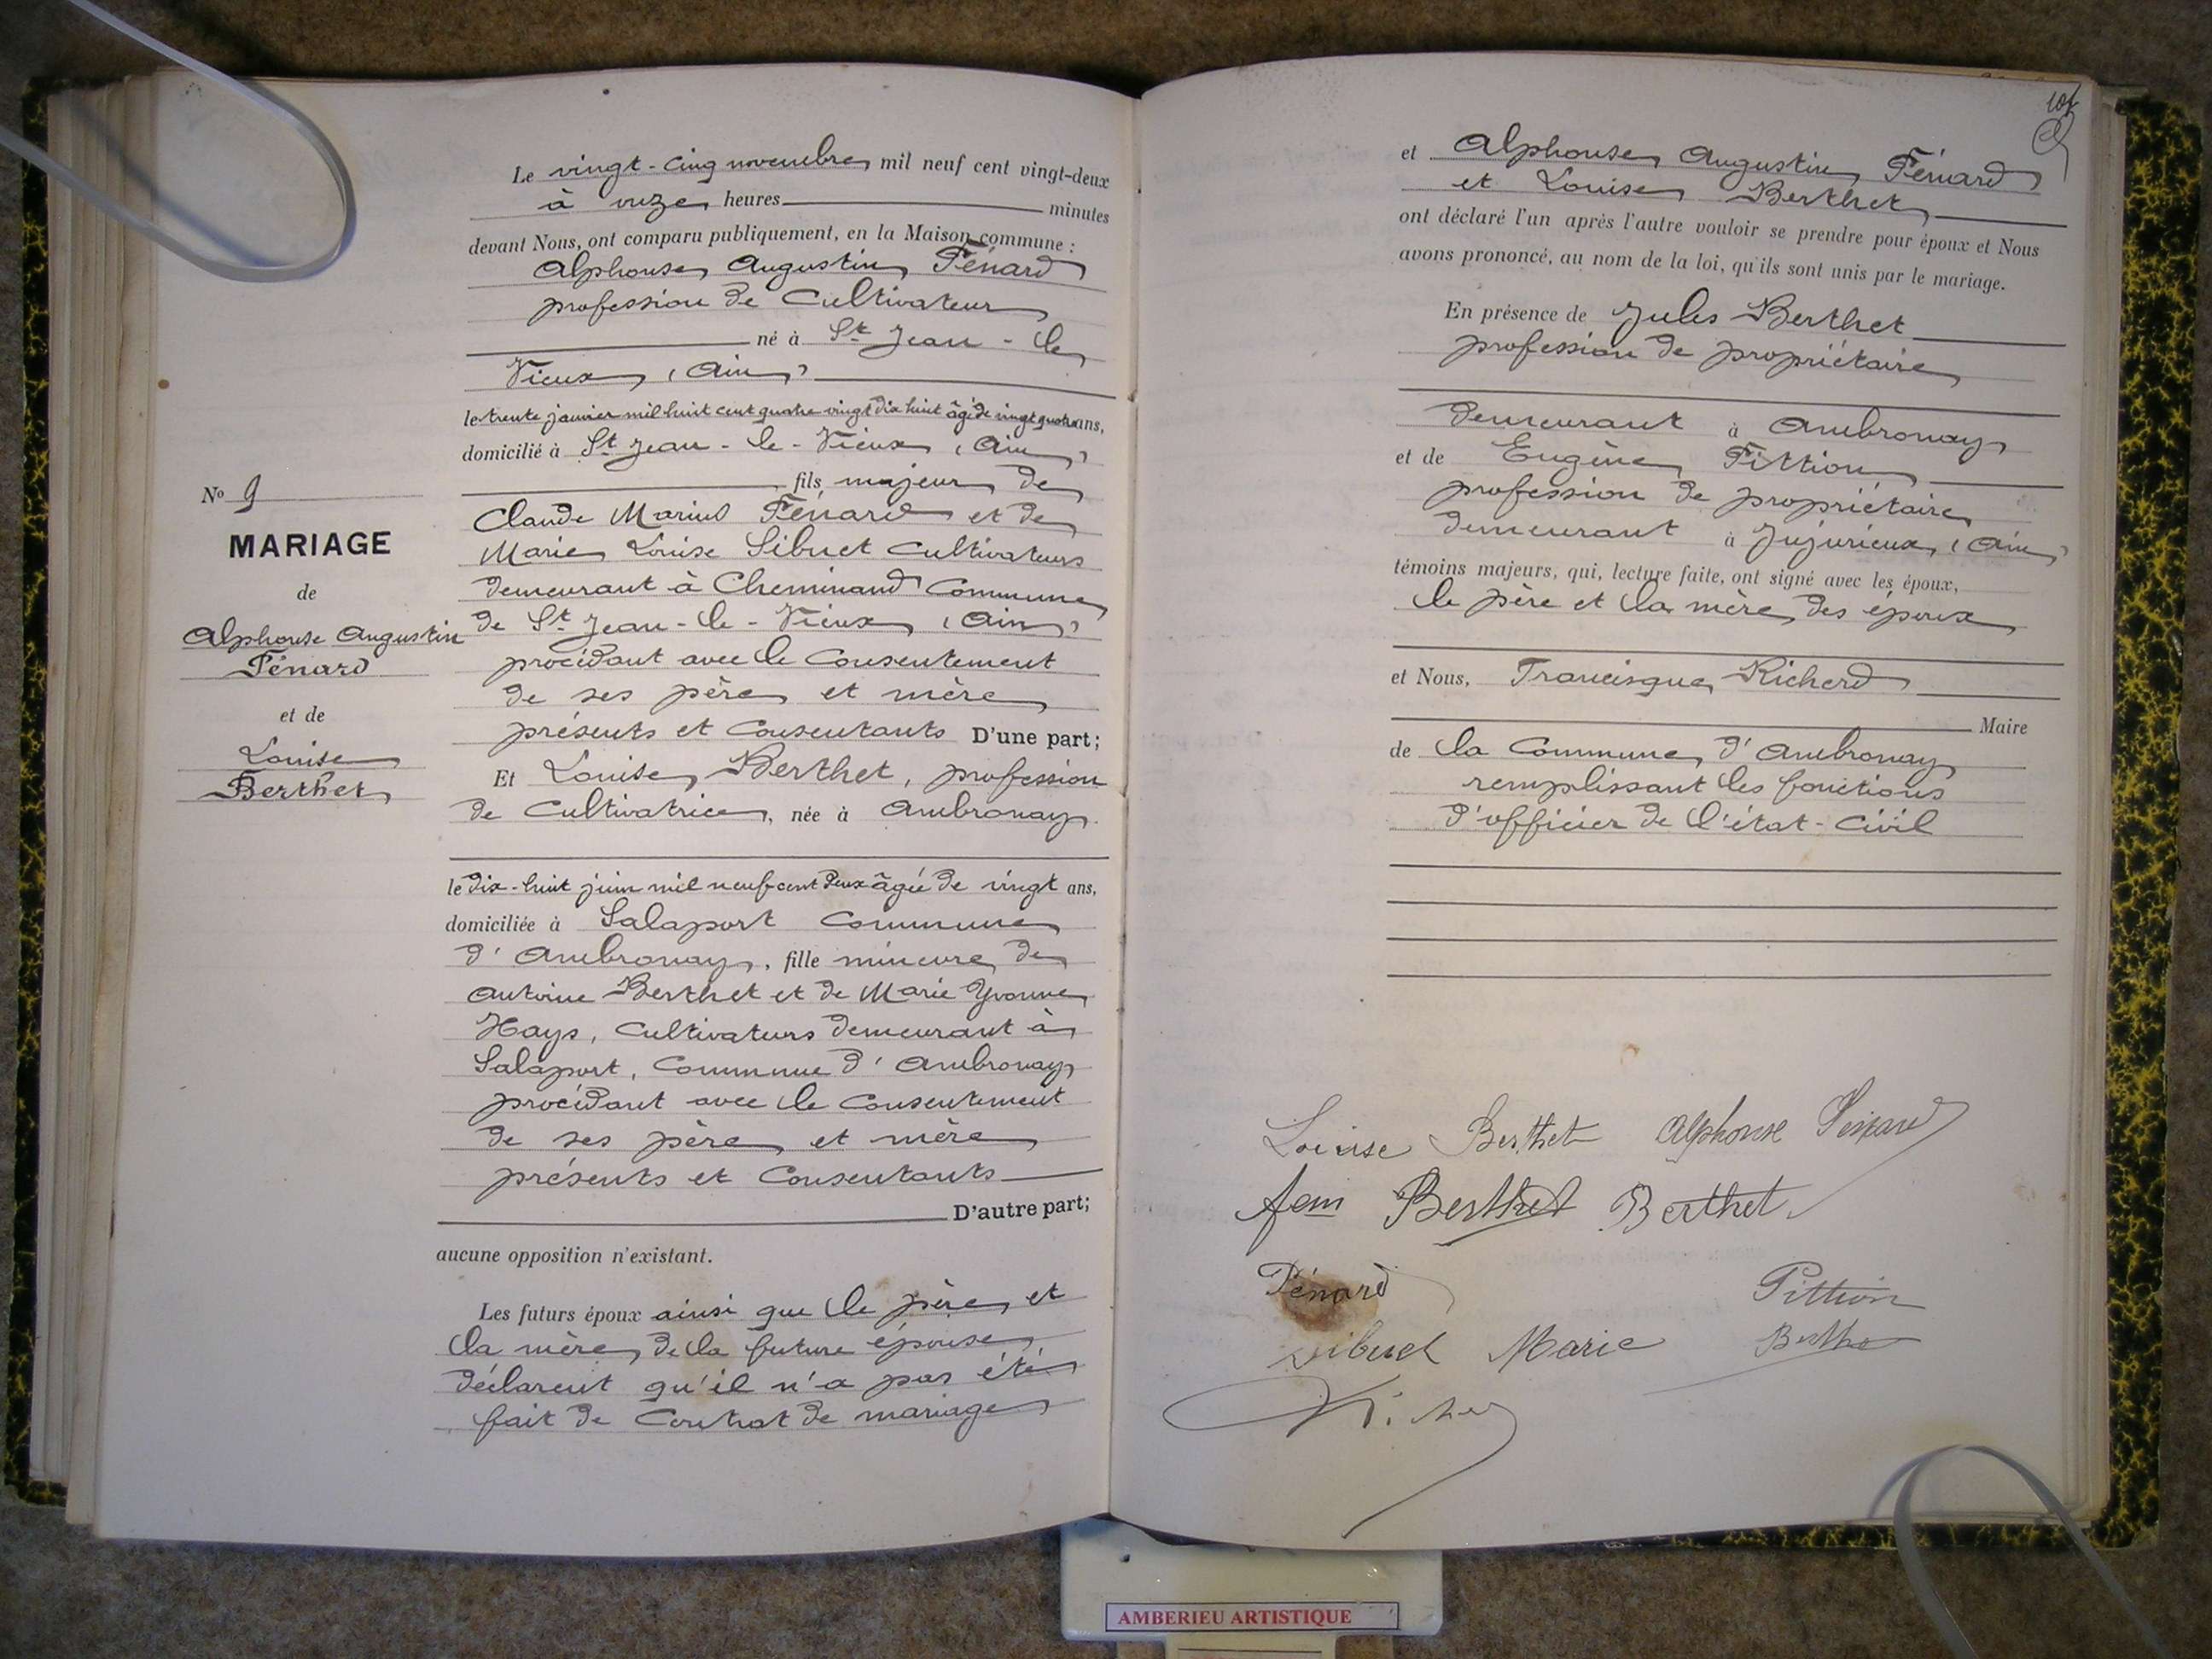 Le vingt-cinq novembre mil neuf cent vingt-deux
à onze heures minutes
devant Nous, ont comparu publiquement, en la Maison commune :
Alphonse Augustin Pénard
profession de Cultivateur
né à St Jean-le
Vieux (Ain)
le trente janvier mil huit cent quatre vingt dix huit âgé de vingt quatre ans,
domicilié à St Jean-le-Vieux (Ain)
fils majeur de
Claude Marius Pénard et de
Marie Louise Sibuet Cultivateurs
demeurant à Cheminand Commune
de St Jean-le-Vieux (Ain)
procédant avec le Consentement
de ses père et mère
présents et Consentants D'une part;
Et Louise Berthet, profession
de Cultivatrice, née à Ambronay
le dix-huit juin mil neuf cent deux âgée de vingt ans,
domiciliée à Salaport Commune
d'Ambronay, fille mineure de
Antoine Berthet et de Marie Yvonne
Hays, Cultivateurs demeurant à
Salaport, Commune d'Ambronay
procédant avec le Consentement
de ses père et mère
présents et Consentants
D'autre part;
aucune opposition n'existant.
Les futurs époux ainsi que le père et
la mère de la future épouse
déclarent qu'il n'a pas été
fait de Contrat de mariage
No 9
MARIAGE
de
Alphonse Augustin
Pénard
et de
Louise
Berthet
et Alphonse Augustin Pénard
et Louise Berthet
ont déclaré l'un après l'autre vouloir se prendre pour époux et Nous
avons prononcé, au nom de la loi, qu'ils sont unis par le mariage.
En présence de Jules Berthet
profession de propriétaire
demeurant à Ambronay
et de Eugène Pittion
profession de propriétaire
demeurant à Jujurieux (Ain)
témoins majeurs, qui, lecture faite, ont signé avec les époux,
le père et la mère des époux
et Nous, Francisque Richerd
Maire
de la Commune d'Ambronay
remplissant les fonctions
d'officier de l'état-civil
Louise Berthet Alphonse Pénard
fem Berthet Berthet
Pénard Pittion
Sibuet Marie
AMBERIEU ARTISTIQUE